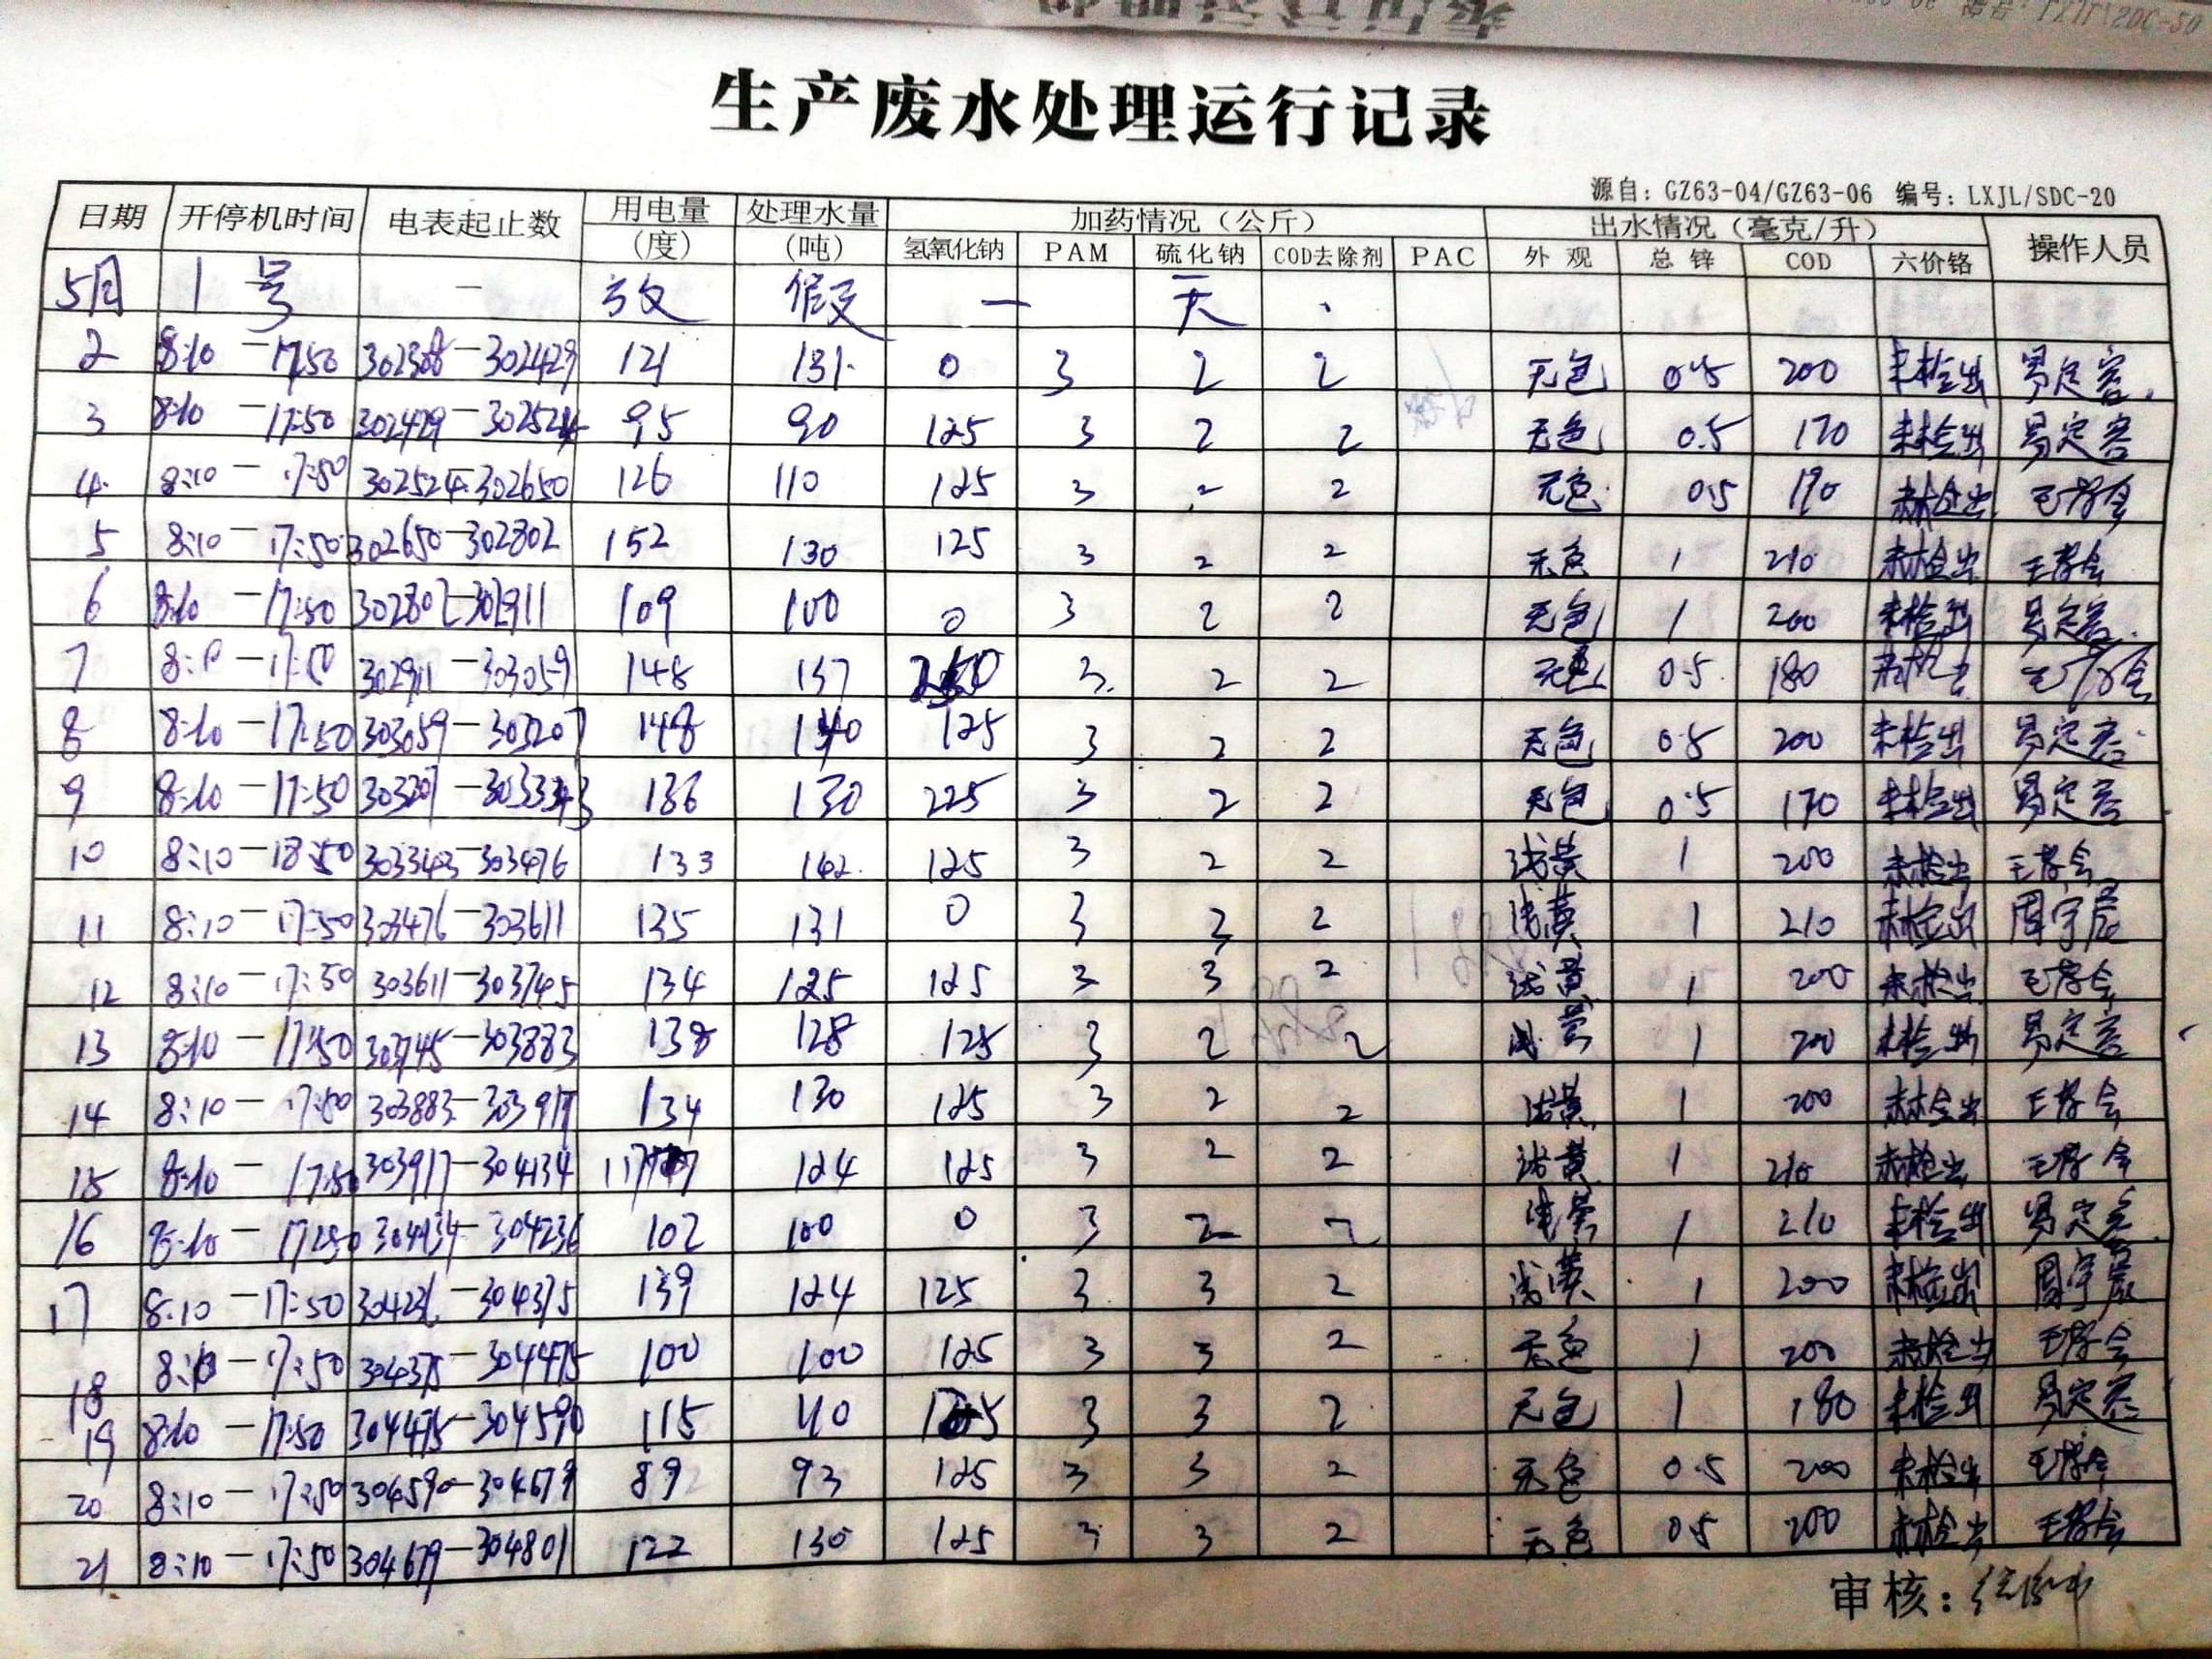 生产废水处理运行记录
源自：GZ63-04/GZ63-06 编号：LXJL/SDC-20
日期 开停机时间 电表起止数 用电量（度） 处理水量（吨） 加药情况（公斤） 出水情况（毫克/升） 操作人员
氢氧化钠 PAM 硫化钠 COD去除剂 PAC 外观 总锌 COD 六价铬
5月 1号 — 放假一天.
2 8:10—17:50 302308—302429 121 131 0 3 2 2 无色 0.5 200 未检出 易定容
3 8:10—17:50 302429—302524 95 90 125 3 2 2 无色 0.5 170 未检出 易定容
4 8:10—17:50 302524-302650 126 110 125 3 2 2 无色 0.5 190 未检出 王孝会
5 8:10—17:50 302650-302802 152 130 125 3 2 2 无色 1 210 未检出 王孝会
6 8:10—17:50 302802-302911 109 100 0 3 2 2 无色 1 200 未检出 易定容
7 302911—303059 148 137 250 3 2 2 无色 0.5 180 未检出 王孝会
8 8:10—17:50 303059—303207 148 140 125 3 2 2 无色 0.5 200 未检出 易定容
9 8:10—17:50 303207—303343 136 130 225 3 2 2 无色 0.5 170 未检出 易定容
10 8:10—18:50 303343-303476 133 142 125 3 2 2 浅黄 1 200 未检出 王孝会
11 8:10—17:50 303476—303611 135 131 0 3 3 2 浅黄 1 210 未检出 周宇辰
12 8:10—17:50 303611-303745 134 125 125 3 3 2 浅黄 1 200 未检出 王孝会
13 8:10—17:50 303745-303883 138 128 125 3 2 2 浅黄 1 200 未检出 易定容
14 8:10—17:50 303883-303917 134 130 125 3 2 2 浅黄 1 200 未检出 王孝会
15 8:10—17:50 303917-304134 124 125 3 2 2 浅黄 1 210 未检出 王孝会
16 8:10—17:50 304134-304236 102 100 0 3 2 2 浅黄 1 210 未检出 易定容
17 8:10—17:50 304236-304375 139 124 125 3 3 2 浅黄 1 200 未检出 周宇辰
18 8:10—17:50 304375-304475 100 100 125 3 3 2 无色 1 200 未检出 王孝会
19 8:10—17:50 304475-304590 115 110 125 3 3 2 无色 1 180 未检出 易定容
20 8:10—17:50 304590-304679 89 93 125 3 3 2 无色 0.5 200 未检出 王孝会
21 8:10—17:50 304679-304801 122 130 125 3 3 2 无色 0.5 200 未检出 王孝会
审核：